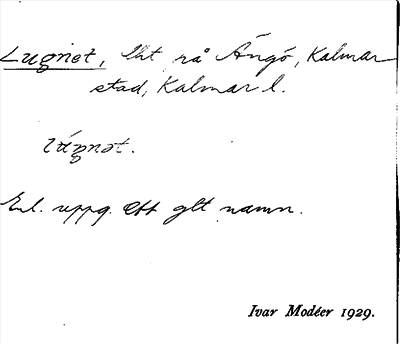 Lugnet, lht på Ängö, Kalmar
stad, Kalmar l.
lúgnət.
Enl. uppg. ett glt namn.
Ivar Modéer 1929.